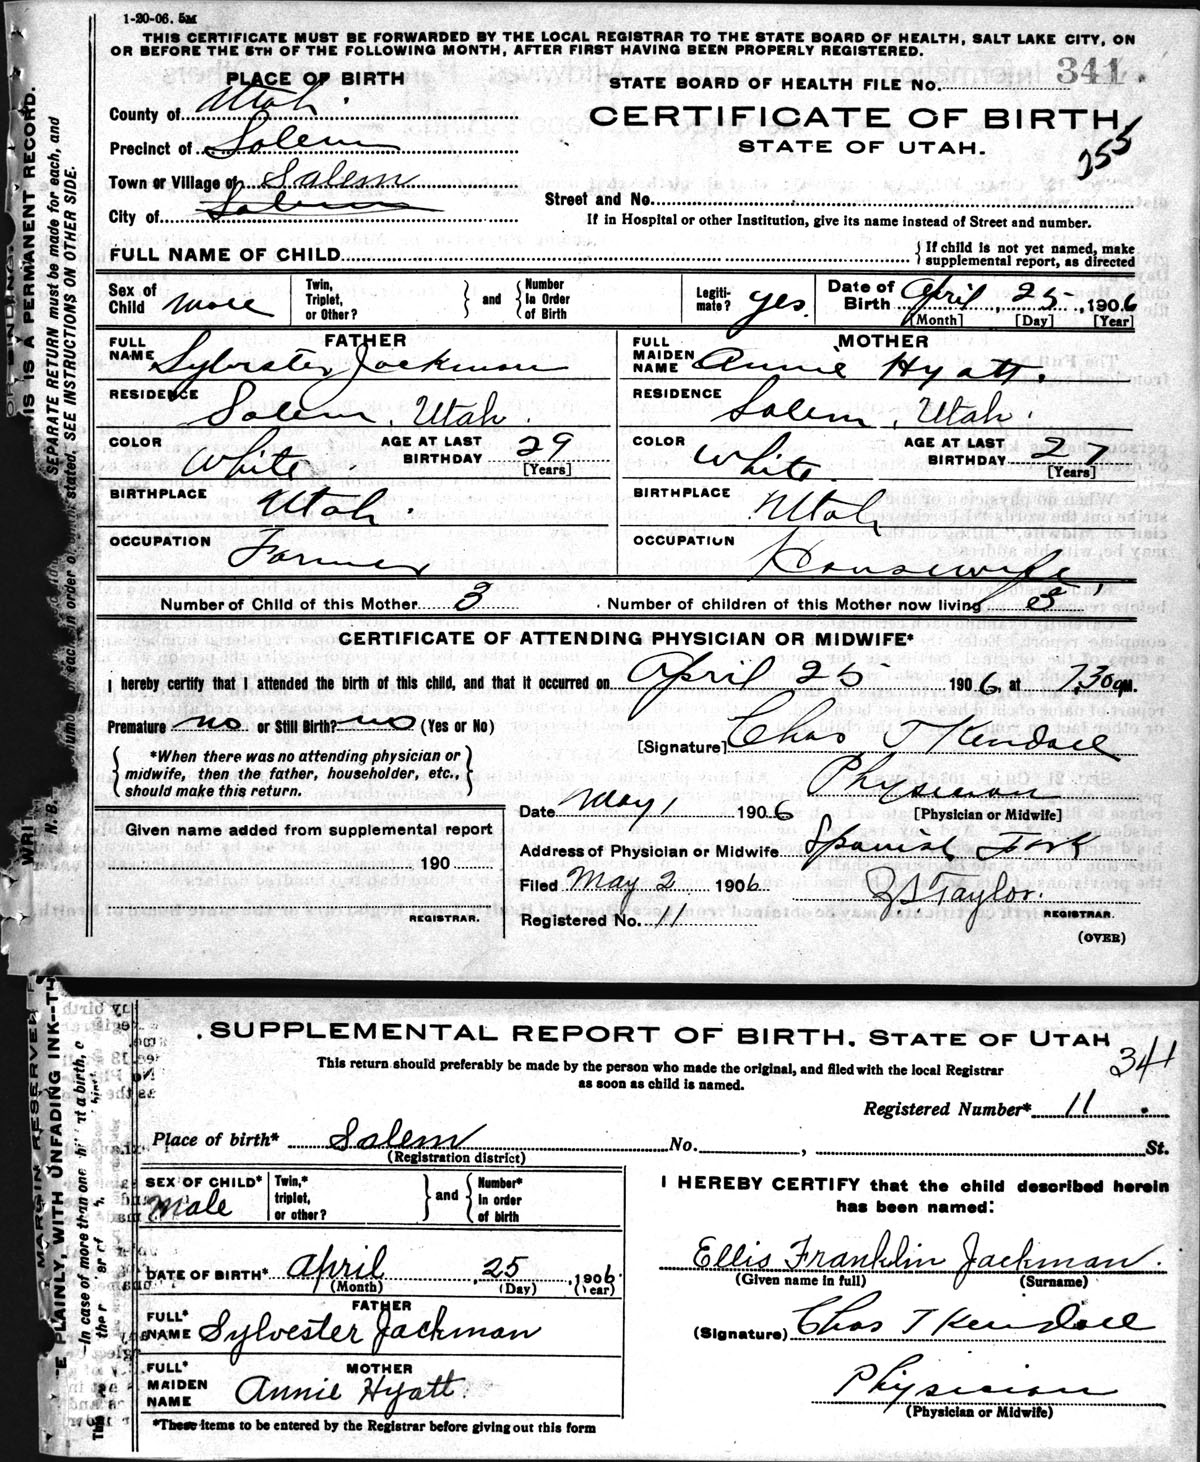 1-20-06. 5M
THIS CERTIFICATE MUST BE FORWARDED BY THE LOCAL REGISTRAR TO THE STATE BOARD OF HEALTH, SALT LAKE CITY, ON
OR BEFORE THE 5TH OF THE FOLLOWING MONTH, AFTER FIRST HAVING BEEN PROPERLY REGISTERED.
PLACE OF BIRTH
STATE BOARD OF HEALTH FILE No. 341.
County of Utah.
CERTIFICATE OF BIRTH
255
Precinct of Salem
STATE OF UTAH.
Town or Village of Salem
Street and No.
City of Salem
If in Hospital or other Institution, give its name instead of Street and number.
FULL NAME OF CHILD
{ If child is not yet named, make
supplemental report, as directed
Sex of Child Male
Twin, Triplet, or Other? } and { Number In Order of Birth
Legiti-mate? yes.
Date of Birth April, 25, 1906
[Month] [Day] [Year]
FATHER
FULL NAME Sylvester Jackman
MOTHER
FULL MAIDEN NAME Annie Hyatt.
RESIDENCE Salem, Utah.
RESIDENCE Salem, Utah.
COLOR White. AGE AT LAST BIRTHDAY 29 [Years]
COLOR White. AGE AT LAST BIRTHDAY 27 [Years]
BIRTHPLACE Utah.
BIRTHPLACE Utah
OCCUPATION Farmer
OCCUPATION Housewife
Number of Child of this Mother 3 Number of children of this Mother now living 3
CERTIFICATE OF ATTENDING PHYSICIAN OR MIDWIFE*
I hereby certify that I attended the birth of this child, and that it occurred on April 25 1906, at 7.30
Premature no or Still Birth? no (Yes or No)
[Signature] Chas T Kendall
{ *When there was no attending physician or
midwife, then the father, householder, etc.,
should make this return. }
Physician
[Physician or Midwife]
Date May 1 1906
Given name added from supplemental report
190
REGISTRAR.
Address of Physician or Midwife Spanish Fork
Filed May 2 1906
Registered No. 11
Taylor.
REGISTRAR.
(OVER)
IS IS A PERMANENT RECORD.
SEPARATE RETURN must be made for each, and
stated. SEE INSTRUCTIONS ON OTHER SIDE.
N. B.
SUPPLEMENTAL REPORT OF BIRTH, STATE OF UTAH
This return should preferably be made by the person who made the original, and filed with the local Registrar
as soon as child is named.
341
Registered Number* 11
Place of birth* Salem No. , St.
(Registration district)
SEX OF CHILD* Male
Twin,* triplet, or other? } and { Number* in order of birth
DATE OF BIRTH* April, 25, 1906
(Month) (Day) (Year)
FATHER
FULL* NAME Sylvester Jackman
MOTHER
FULL* MAIDEN NAME Annie Hyatt.
*These items to be entered by the Registrar before giving out this form
I HEREBY CERTIFY that the child described herein
has been named:
Ellis Franklin Jackman.
(Given name in full) (Surname)
(Signature) Chas T Kendall
Physician
(Physician or Midwife)
MARGIN RESERVED F
E PLAINLY, WITH UNFADING INK--TH
In case of more than one